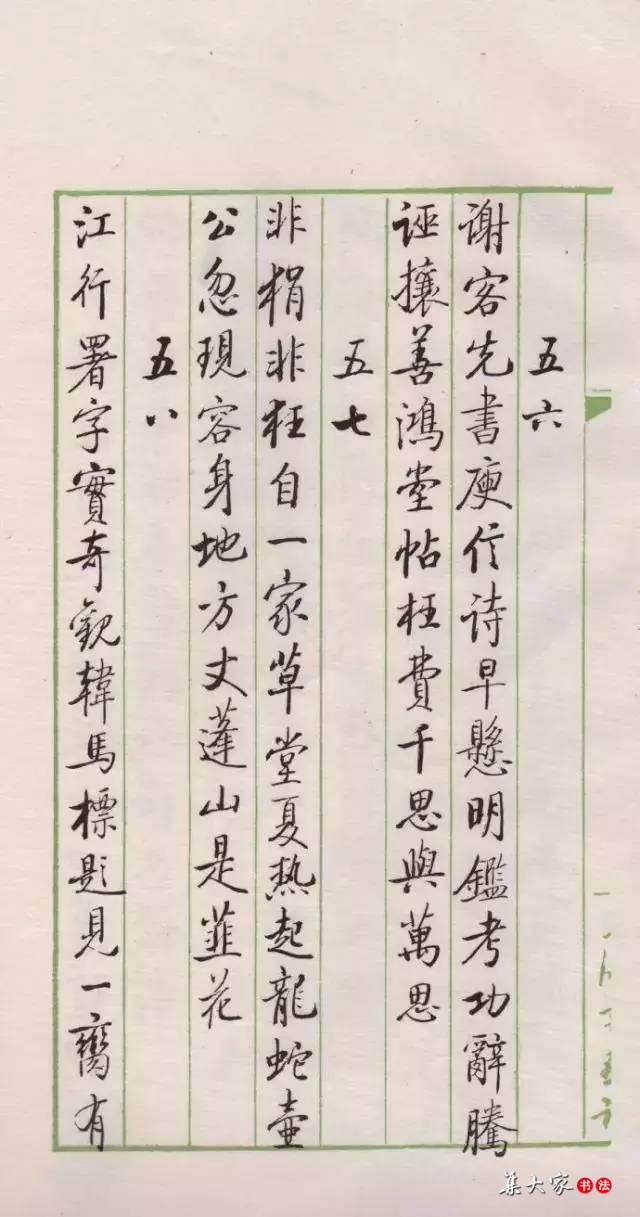 五六
谢客先書庾信诗早懸明鑑考功辭騰
誣攘善鴻堂帖枉費千思與萬思
五七
非楫非枉自一家草堂夏热起龍蛇壷
公忽現容身地方丈蓬山是韮花
五八
江行署字實奇觀韓馬標题見一臠有
集大家 书法